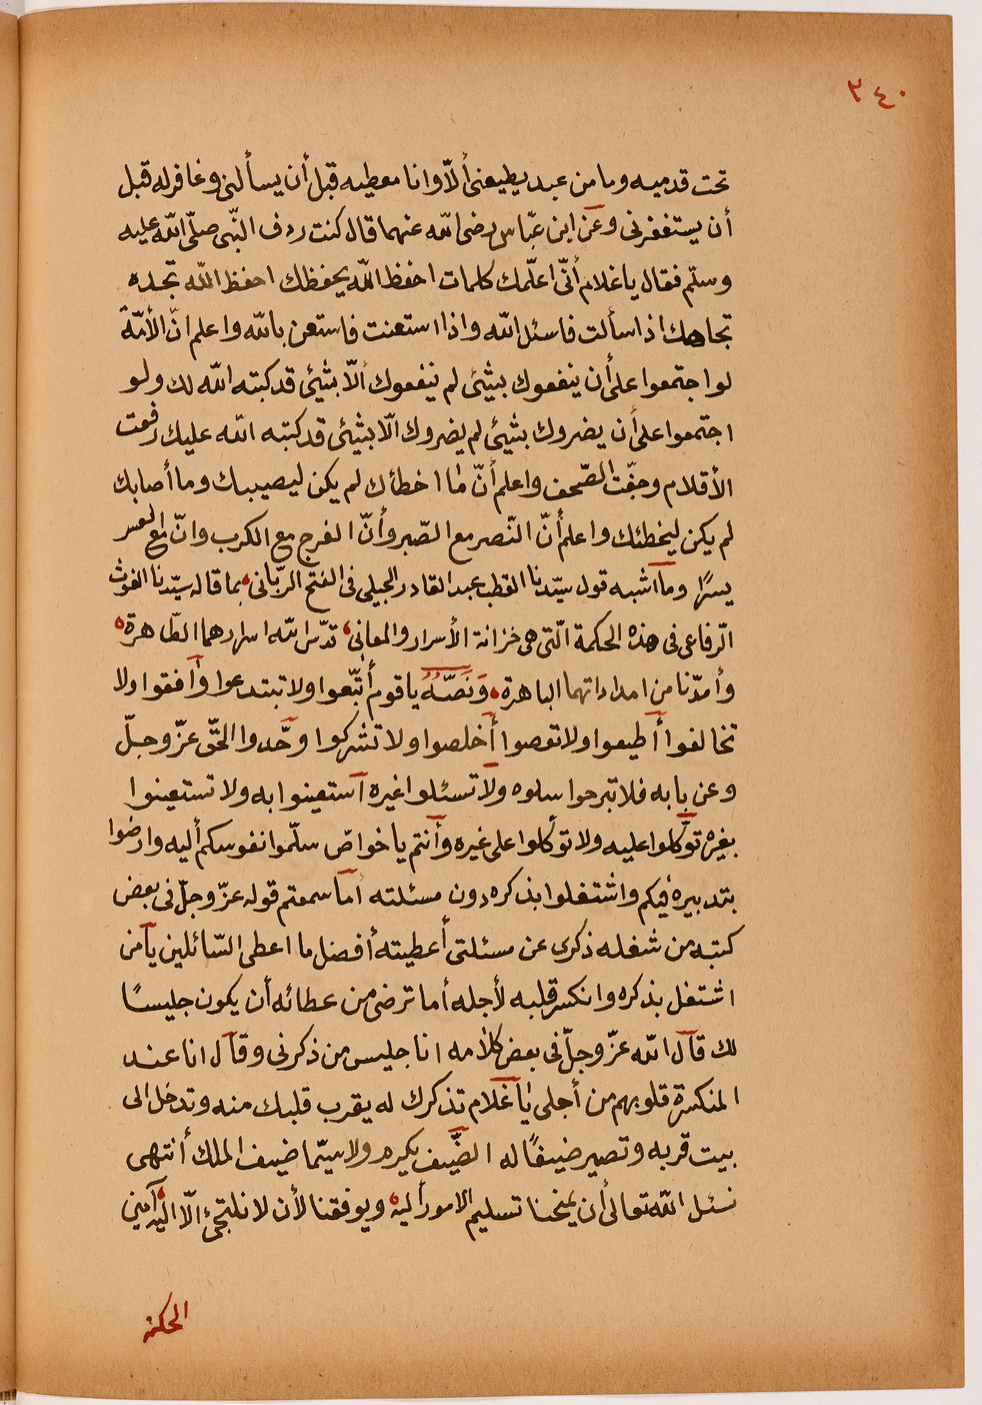 ٢٤٠
تحت قدميه وما من عبد يطيعنى ألّا وانا معطيه قبل أن يسألنى وغافر له قبل
أن يستغفرنى وعن ابن عبّاس رضى الله عنهما قال كنت ردف النّبى صلّى الله عليه
وسلّم فقال يا غلام أنّى اعلّمك كلمات احفظ الله يحفظك احفظ الله تجده
تجاهك اذا سألت فاسئل الله واذا استعنت فاستعن بالله واعلم انّ الأمّة
لو اجتمعوا على أن ينفعوك بشيئ لم ينفعوك ألّا بشيئ قد كتبه الله لك ولو
اجتمعوا على أن يضروك بشيئ لم يضروك الّا بشيئ قد كتبه الله عليك رفعت
الأقلام وجفّت الصّحف واعلم أنّ ما اخطأك لم يكن ليصيبك وما أصابك
لم يكن ليخطئك واعلم أنّ النّصر مع الصّبر وأنّ الفرج مع الكرب وانّ مع العسر
يسرًا وما آشبه قول سيّدنا القطب عبد القادر الجيلى فى الفتح الربّانى، بما قاله سيّدنا الغوث
الرّفاعى فى هذه الحكمة الّتى هى خزانة الأسرار والمعانى، قدّس الله اسرارهما الطّاهرة،
وأمدّنا من امداداتهما الباهرة، وَنَصّهُ يا قوم أتّبعوا ولا تبتدعوا وآفقوا ولا
تخالفوا أطيعوا ولا تعصوا أخلصوا ولا تشركوا وحّدوا الحّق عزّ وجلّ
وعن بابه فلا تبرحوا سلوه ولا تسئلوا غيره آستعينوا به ولا تستعينوا
بغيره توّكلوا عليه ولا توّكلوا على غيره وأنتم يا خواصّ سلّموا نفوسكم أليه وارضوا
بتدبيره فيكم واشتغلوا بذكره دون مسئلته أما سمعتم قوله عزّ وجلّ فى بعض
كتبه من شغله ذكرى عن مسئلتى أعطيته أفضل ما اعطى السّائلين يا من
اشتغل بذكره وانكسر قلبه لأجله أما ترضى من عطائه أن يكون جليسًا
لك قال الله عزّ وجلّ فى بعض كلامه انا جليس من ذكرنى وقال انا عند
المنكسرة قلوبهم من أجلى يا غلام تذكرك له يقرب قلبك منه وتدخل الى
بيت قربه وتصير ضيفًا له الضّيف يكرم ولا سيّما ضيف الملك أنتهى
نسئل الله تعالى أن يمنحنا تسليم الامور أليه ويوفقنا لأن لا نلتجئ الّا اليه، آمين
الحكمة